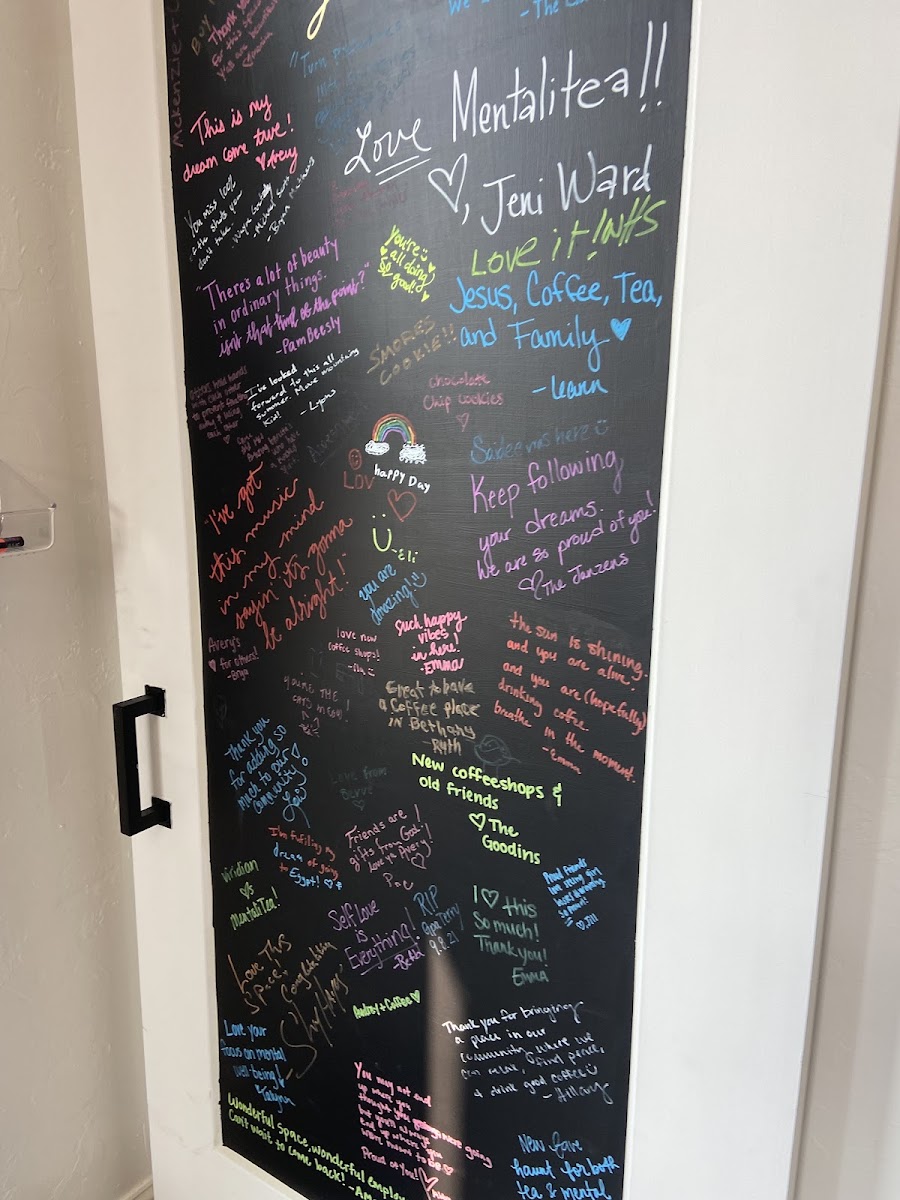 McKenzie +
BUY
Thank you
for this
"Turn
We
- The
This is my
dream come true!
♡ Avery
Love Mentalitea!!
♡, Jeni Ward
You miss 100%
of the shots you
don't take.
-Wayne Gretzky
-Michael Scott
LOVE it!
"There's a lot of beauty
in ordinary things.
isn't that kind of the point?"
- Pam Beesly
You're
all doing
so good!
Jesus, Coffee, Tea,
and Family ♥
- Learn
SMORES
COOKIE!!
I've looked
forward to this all
summer. Move mountains
Kid!
- Lyons
each other
Chocolate
Chip Cookies
♡
HAPPY DAY
LOV
Saidee was here ☺
Keep following
your dreams.
We are so proud of you!
♡ The Janzens
"I've got
this music
in my mind
sayin' it's gonna
be alright!"
-Eli
you are
amazing!
Such happy
vibes
in here!
-EMMA
Avery's
♥ for others!
-Brya
love new
coffee shops!
the sun is shining.
and you are alive.
and you are (hopefully)
drinking coffee
breathe in the moment.
-Emma
YOU'RE THE
CATS MEOW!
Great to have
a coffee place
in Bethany
-Ruth
Thank you
for adding so
much to our
community!
Love from
New coffeeshops &
old friends
♡ The
Goodins
I'm fulfiling my
dream of going
to Egypt! ♡
Friends are
gifts from God!
Love ya Avery!
♡
Viridian
♡s
MentaliTea!
Self Love
is
Everything!
-Beth
RIP
Gpa Terry
9.8.21
I ♡ this
so much!
Thank you!
Emma
Proud friends
♡ Jill
Love This
Space!
Audrey + Coffee ♡
Love your
focus on mental
well-being!
Thank you for bringing
a place in our
community where we
can relax, find peace,
& drink good coffee ☺
- Hillary
You may not end
up where you
thought you were going
but you'll always
End up where you
were meant to be ♡
Proud of you!
Wonderful space, wonderful employe
Can't wait to come back! -Am
New fave
haunt for both
tea & mental